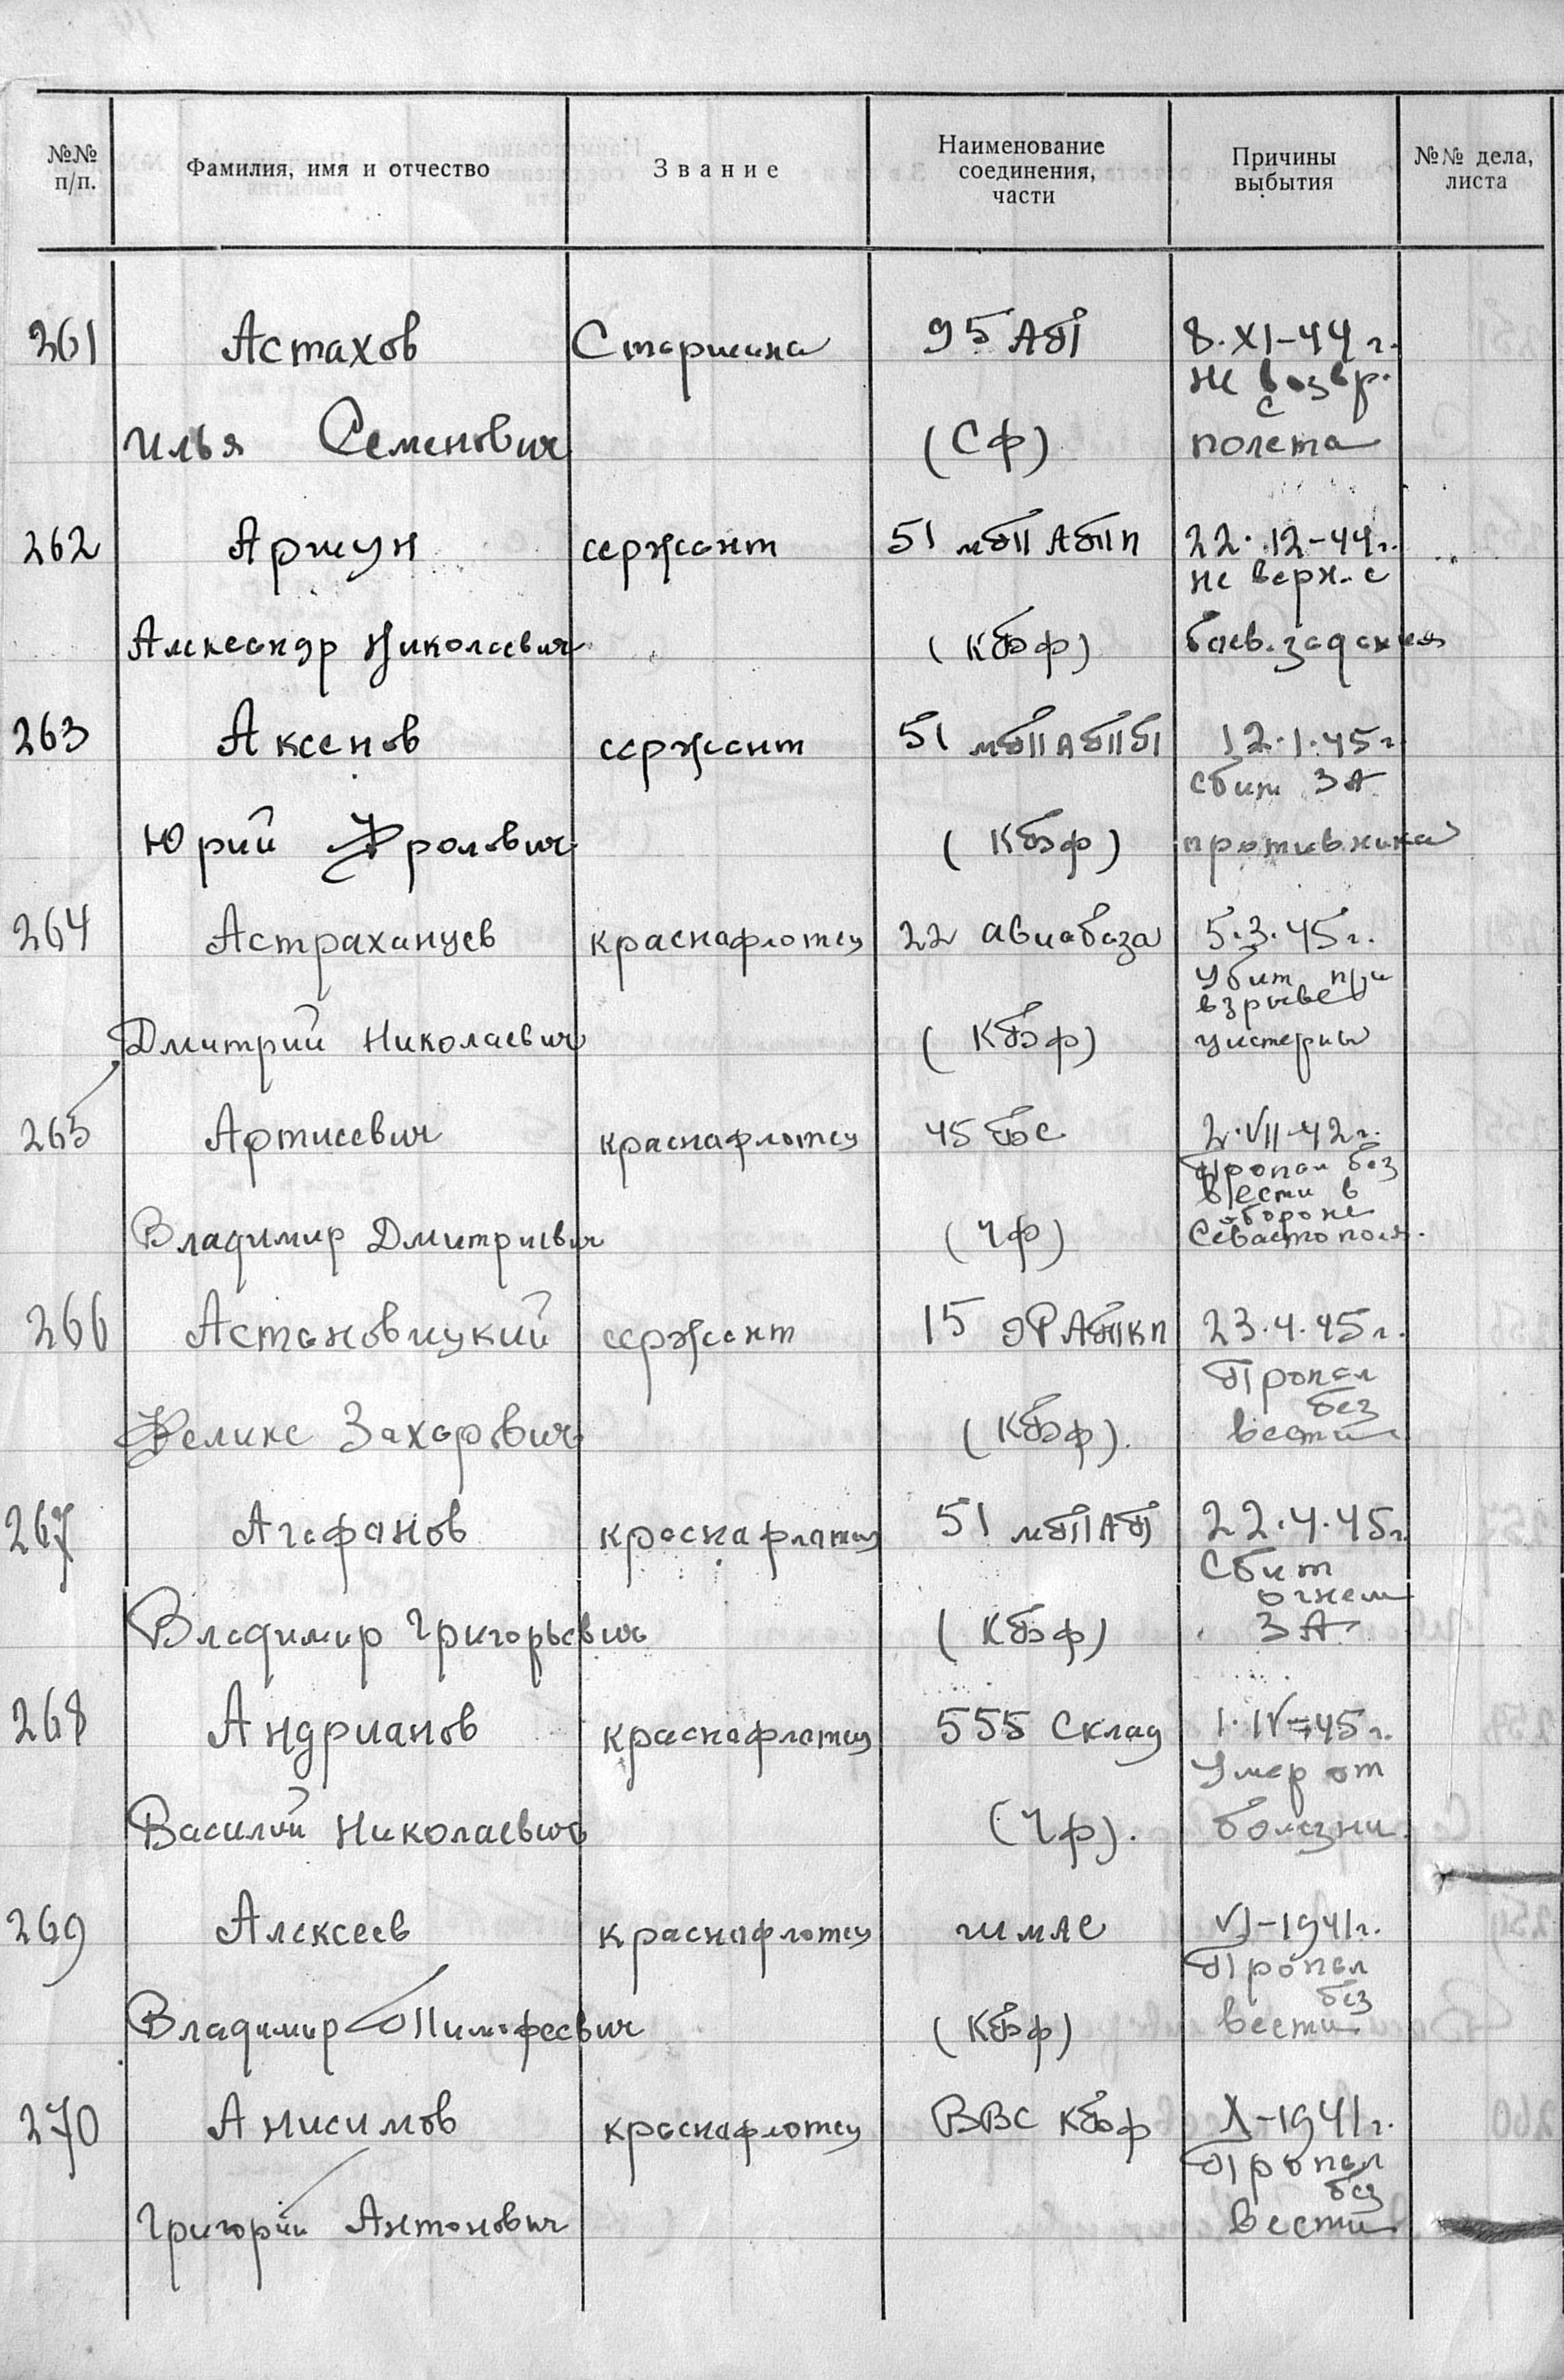 №№ п/п.
Фамилия, имя и отчество
Звание
Наименование соединения, части
Причины выбытия
№№ дела, листа
261 Астахов Старшина 95 АП 8.XI-44 г.
не возвр.
с
Илья Семенович (СФ) полета
262 сержант 22.12-44г.
не верн. с
Александр Николаевич (КБФ) боев. задания
263 Аксенов сержант 12.1.45 г.
сбит ЗА
Юрий Фролович (КБФ) противника
264 Астраханцев краснафлотец 22 авиабаза 5.3.45 г.
Убит при
взрыве
Дмитрий Николаевич (КБФ) цистерны
265 Артисевич краснафлотец 45 2.VII-42 г.
Пропал без
вести в
обороне
Владимир Дмитриевич (ЧФ) Севастополя.
266 Астановицкий сержант 15 23.4.45 г.
Пропал
без
Феликс Захарович (КБФ). вести
267 Агафанов краснафлотец 51 мтАП 22.4.45 г.
Сбит
огнем
Владимир Григорьевич (КБФ) ЗА
268 Андрианов краснафлотец 555 склад 1.IV-45 г.
Умер от
Василий Николаевич (ЧФ). болезни.
269 Алексеев краснафлотец шмас VI-1941 г.
Пропал
без
Владимир Тимофеевич (КБФ) вести
270 Анисимов краснафлотец ВВС КБФ X-1941 г.
Пропал
без
Григорий Антонович вести